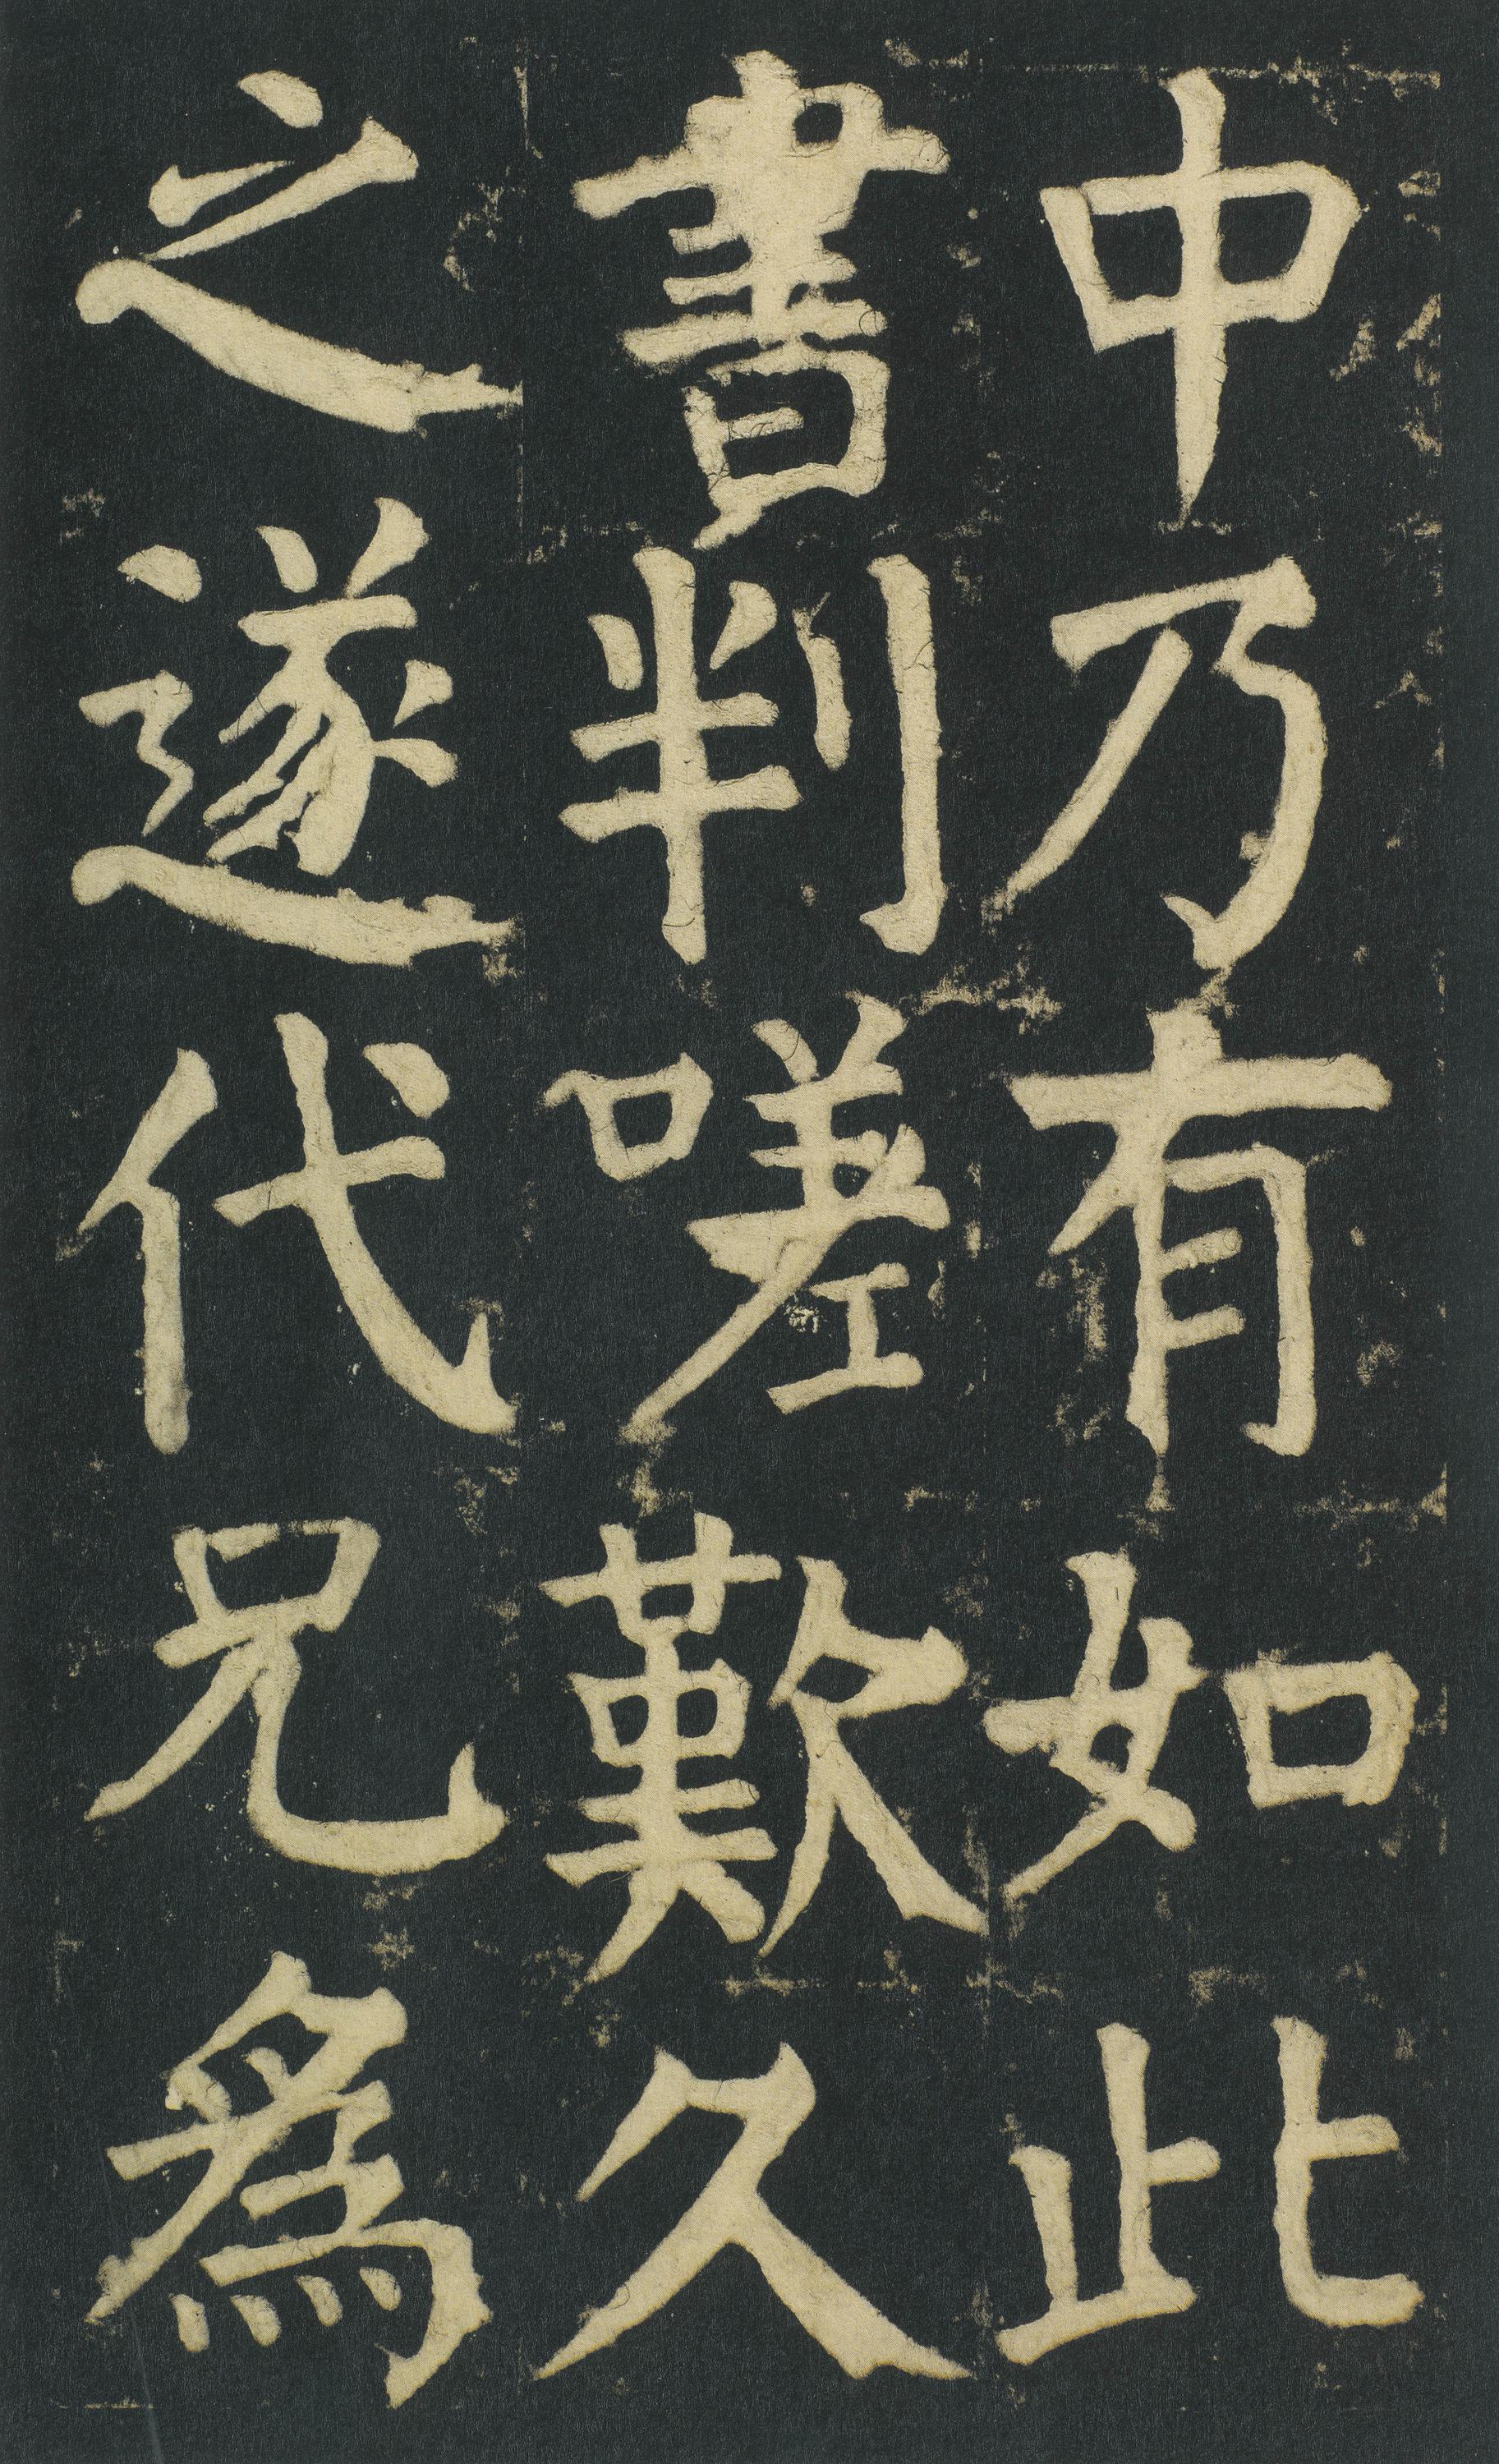 中乃有如此
書判嗟歎久
之遂代兄爲